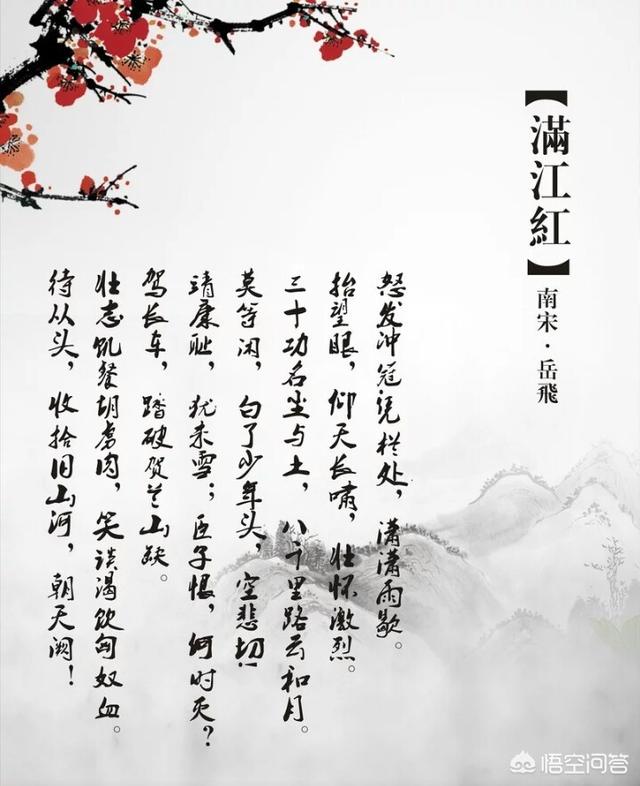 【滿江紅】
南宋·岳飛
怒发冲冠凭栏处，潇潇雨歇。
抬望眼，仰天长啸，壮怀激烈。
三十功名尘与土，八千里路云和月。
莫等闲，白了少年头，空悲切！
靖康耻，犹未雪；臣子恨，何时灭？
驾长车，踏破贺兰山缺。
壮志饥餐胡虏肉，笑谈渴饮匈奴血。
待从头，收拾旧山河，朝天阙！
悟空问答